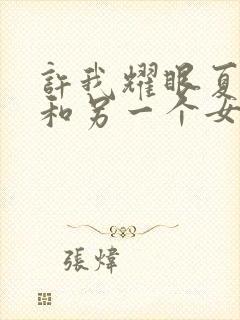 許我耀眼夏
和另一个女
張煒